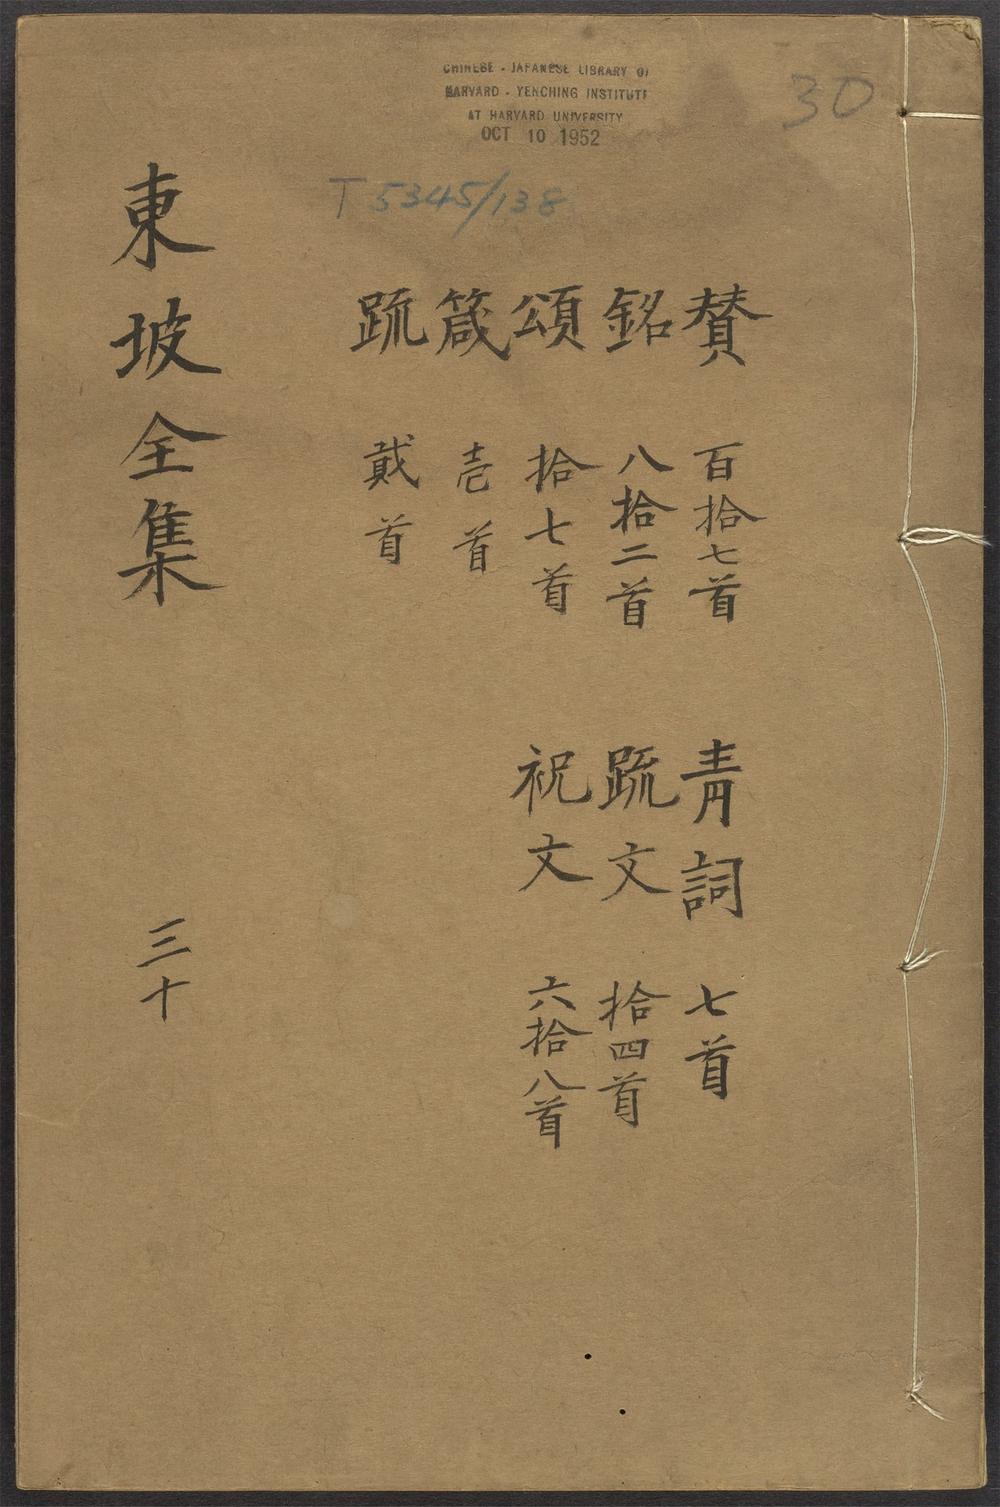 CHINESE - JAPANESE LIBRARY OF
HARVARD - YENCHING INSTITUTE
AT HARVARD UNIVERSITY
OCT 10 1952
30
T 5345/138
賛 百拾七首
銘 八拾二首
頌 拾七首
箴 壱首
䟽 貮首
青詞 七首
䟽文 拾四首
祝文 六拾八首
東坡全集 三十